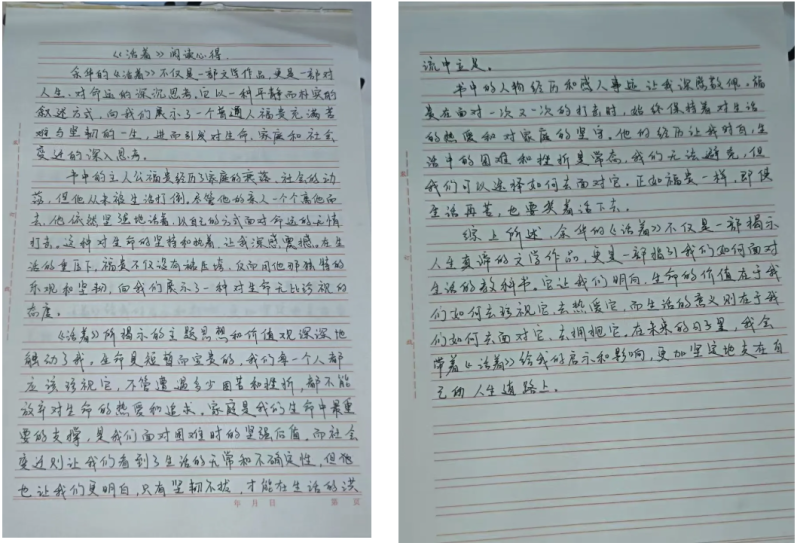 《活着》阅读心得.
余华的《活着》不仅是一部文学作品,更是一部对
人生、对命运的深沉思考。它以一种平静而朴实的
叙述方式,向我们展示了一个普通人福贵充满苦
难与坚韧的一生,进而引发对生命、家庭和社会
变迁的深入思考。
书中的主人公福贵经历了家庭的衰落、社会的动
荡,但他从未被生活打倒,尽管他的亲人一个个离他而
去,他依然坚强地活着,以自己的方式面对命运的无情
打击。这种对生命的坚持和执着,让我深感震撼。在生
活的重压下,福贵不仅没有被压垮,反而用他那独特的
乐观和坚韧,向我们展示了一种对生命无比珍视的
态度。
《活着》所揭示的主题思想和价值观深深地
触动了我。生命是短暂而宝贵的,我们每一个人都
应该珍视它,不管遭遇多少困苦和挫折,都不能
放弃对生命的热爱和追求。家庭是我们生命中最重
要的支撑,是我们面对困难时的坚强后盾。而社会
变迁则让我们看到了生活的无常和不确定性,但
也让我们更明白,只有坚韧不拔,才能在生活的洪
年 月 日 第 页
流中立足。
书中的人物经历和感人事迹让我深感敬佩。福
贵在面对一次又一次的打击时,始终保持着对生活
的热爱和对家庭的坚守。他的经历让我明白,生
活中的困难和挫折是常态,我们无法避免,但
我们可以选择如何去面对它。正如福贵一样,即使
生活再苦,也要笑着活下去。
综上所述,余华的《活着》不仅是一部揭示
人生真谛的文学作品,更是一部指引我们如何面对
生活的教科书。它让我们明白,生命的价值在于我
们如何去珍视它、去热爱它,而生活的意义则在于我
们如何去面对它、去拥抱它。在未来的日子里,我会
带着《活着》给我的启示和影响,更加坚定地走在自
己的人生道路上.